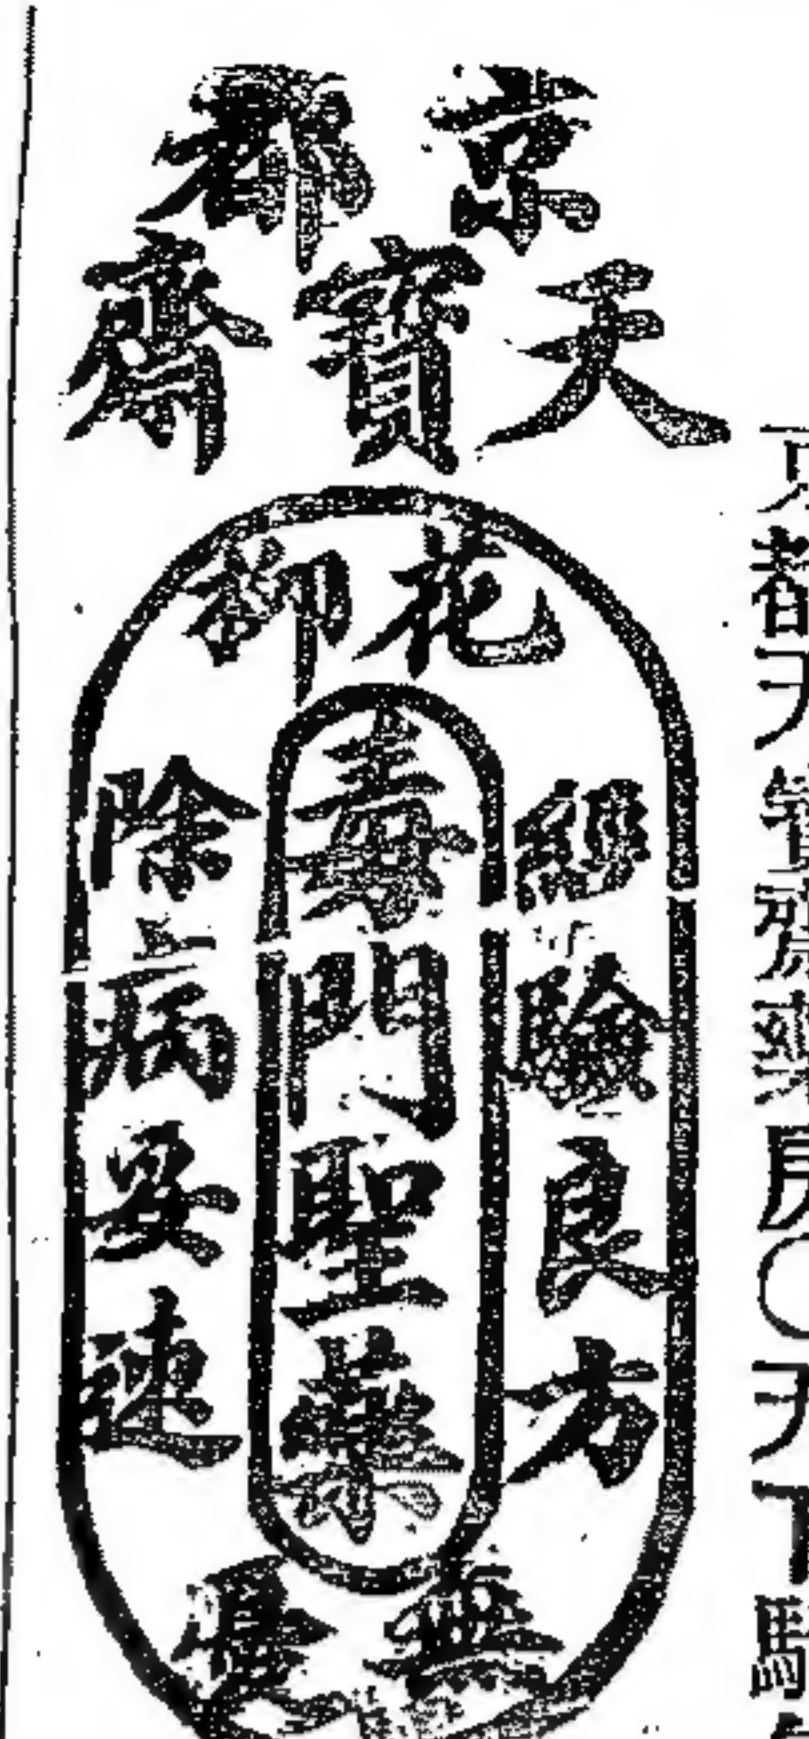 京都
天寶齋
花柳
毒門聖藥
經驗良方
除病妥速
無
都天寶
房〇天下馳